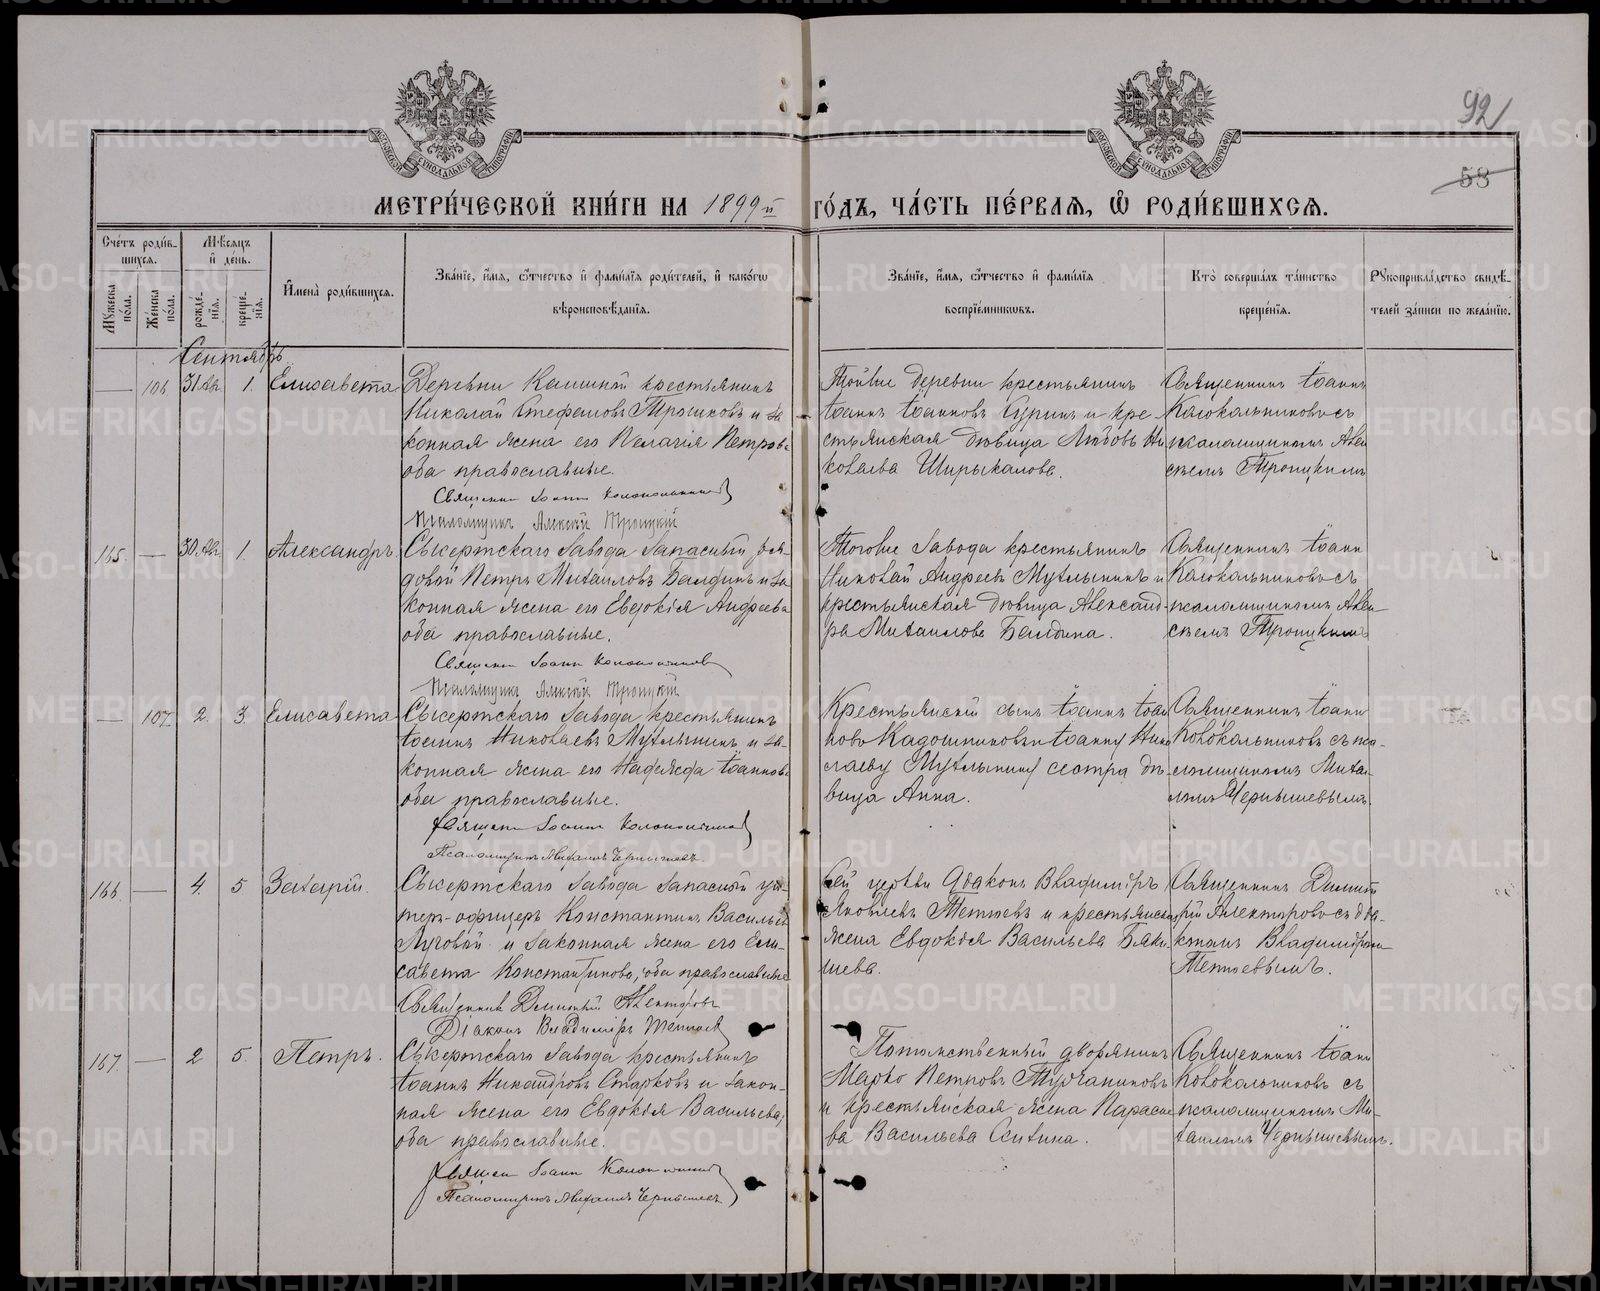 92
58
МОСКОВСКОЙ СѴНОДАЛЬНОЙ ТИПОГРАФІИ
МОСКОВСКОЙ СѴНОДАЛЬНОЙ ТИПОГРАФІИ
МЕТРИ́ЧЕСКОЙ КНИ́ГИ НА 1899 й ГО́ДЪ, ЧА́СТЬ ПЕ́РВАѦ, Ѡ РОДИ́ВШИХСѦ.
Сче́тъ роди́в-
шихсѧ.
Мѣ́сѧцъ
и҆ де́нь.
Мꙋ́жеска по́ла.
Же́нска по́ла.
рожде́-нїѧ.
креще́-нїѧ.
И҆мена̀ роди́вшихсѧ.
Зва́нїе, и҆́мѧ, ѻ҆́тчество и҆ фами́лїѧ роди́телей, и҆ како́гѡ
вѣроисповѣ́данїѧ.
Зва́нїе, и҆́мѧ, ѻ҆́тчество и҆ фами́лїѧ
воспрїе́мникѡвъ.
Кто̀ соверша́лъ та́инство
креще́нїѧ.
Рꙋкоприкла́дство свидѣ́-
телей за́писи по жела́нїю.
Сентябрь
— 106 31 Ав. 1. Елисавета
Деревни крестьянинъ
Николай Стефановъ Трошковъ и за-
конная жена его Пелагія Петрова
оба православные.
Священн Іоаннъ Колокольниковъ
Псаломщикъ Алексѣй Троицкій
Тойже деревни крестьянинъ
Іоаннъ Іоанновъ и кре-
стьянская дѣвица Любовь Ни-
колаева Ширыкалова.
Священникъ Іоаннъ
Колокольниковъ съ
псаломщикомъ Алек-
сѣемъ Троицкимъ
165. — 30 Ав. 1. Александръ
Сысертскаго завода запасный ря-
довой Петръ Михаиловъ Балдинъ и за-
конная жена его Евдокія Андреева
оба православные.
Священн Іоаннъ Колокольниковъ
Псаломщикъ Алексѣй Троицкій
Тогоже завода крестьянинъ
Николай Андреевъ и
крестьянская дѣвица Александ-
ра Михаилова Балдина.
Священникъ Іоаннъ
Колокольниковъ съ
псаломщикомъ Алек-
сѣемъ Троицкимъ
— 107. 2. 3. Елисавета
Сысертскаго завода крестьянинъ
Іоаннъ Николаевъ и за-
конная жена его Надежда Іоаннова
оба православные.
Священн Іоаннъ Колокольниковъ
Псаломщикъ Михаилъ Чернышевъ.
Крестьянскій сынъ Іоаннъ Іоан-
новъ Кадошниковъ и Іоанну Нико-
лаеву сестра дѣ-
вица Анна.
Священникъ Іоаннъ
Колокольниковъ съ пса-
ломщикомъ Михаи-
ломъ Чернышевымъ.
166. — 4. 5 Захарій.
Сысертскаго завода запасный ун-
теръ-офицеръ Константинъ Васильевъ
Луговой и законная жена его Ели-
савета Константинова, оба православные
Священникъ Димитрій Алекторовъ
Діаконъ Владиміръ Тетюевъ
Сей церкви діаконъ Владиміръ
Яковлевъ Тетюевъ и крестьянская
жена Евдокія Васильева
шева.
Священникъ Димит-
рій Алекторовъ съ діа-
кономъ Владиміромъ
Тетюевымъ.
167. — 2 5. Петръ.
Сысертскаго завода крестьянинъ
Іоаннъ Никандровъ Старковъ и закон-
ная жена его Евдокія Васильева,
оба православные.
Священ Іоаннъ Колокольниковъ
Псаломщикъ Михаилъ Чернышевъ
Потомственный дворянинъ
Марко Петровъ Турчаниновъ
и крестьянская жена Параске-
ва Васильева
Священникъ Іоаннъ
Колокольниковъ съ
псаломщикомъ Ми-
хаиломъ Чернышевымъ.
METRIKI.GASO-URAL.RU